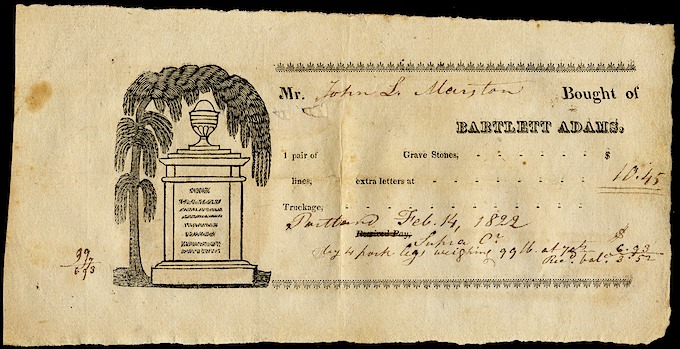 Mr. John L. Marston Bought of
BARTLETT ADAMS.
1 pair of Grave Stones, $
lines, extra letters at 10.45
Truckage,
Portland Feb. 14, 1822
Received Pay,
Supra Cr $
By 4 pork legs weighing 99 lb at 7 6.93
Rec. bal. 3.52
99
7
6.93